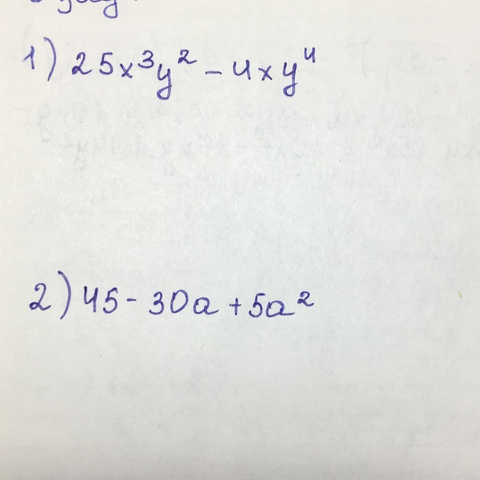 1) 25x³y² - 4xy⁴
2) 45 - 30a + 5a²